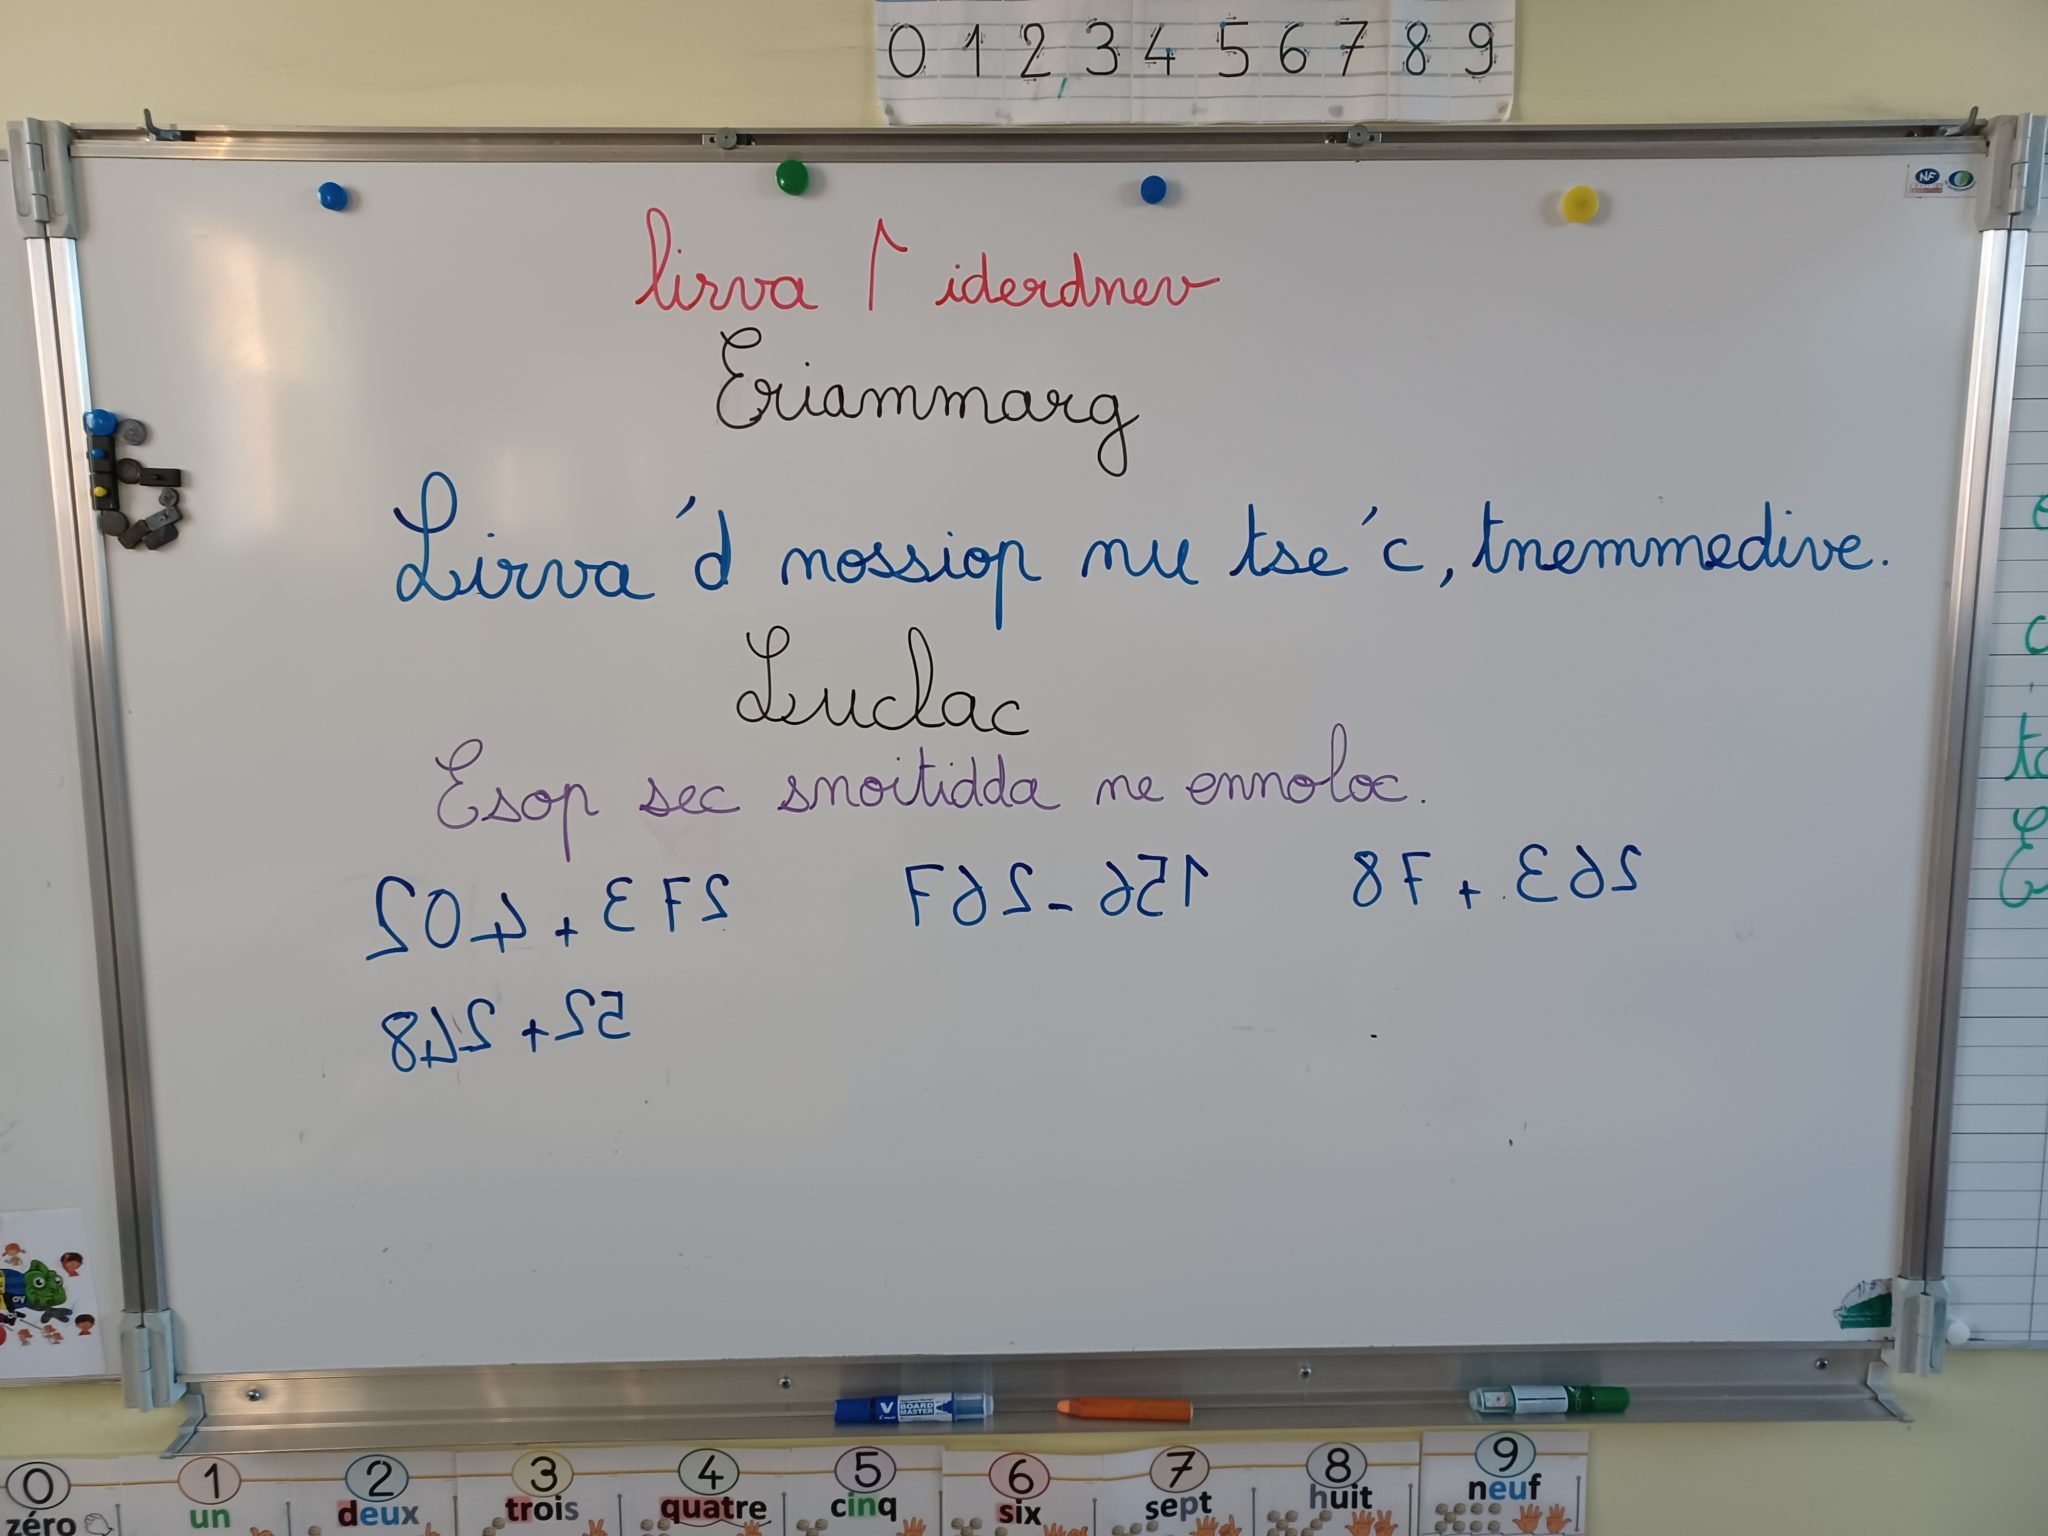 0 1 2 3 4 5 6 7 8 9
NF
lirva 1 iderdnev
Eriammarg
Lirva 'd nossiop nu tse 'c, tnemmedive.
Luclac
Esop sec snoitidda ne ennoloc.
204 + 372 762 - 651 87 + 362
842 + 25
V BOARD MASTER
0 1 2 3 4 5 6 7 8 9
zéro un deux trois quatre cinq six sept huit neuf